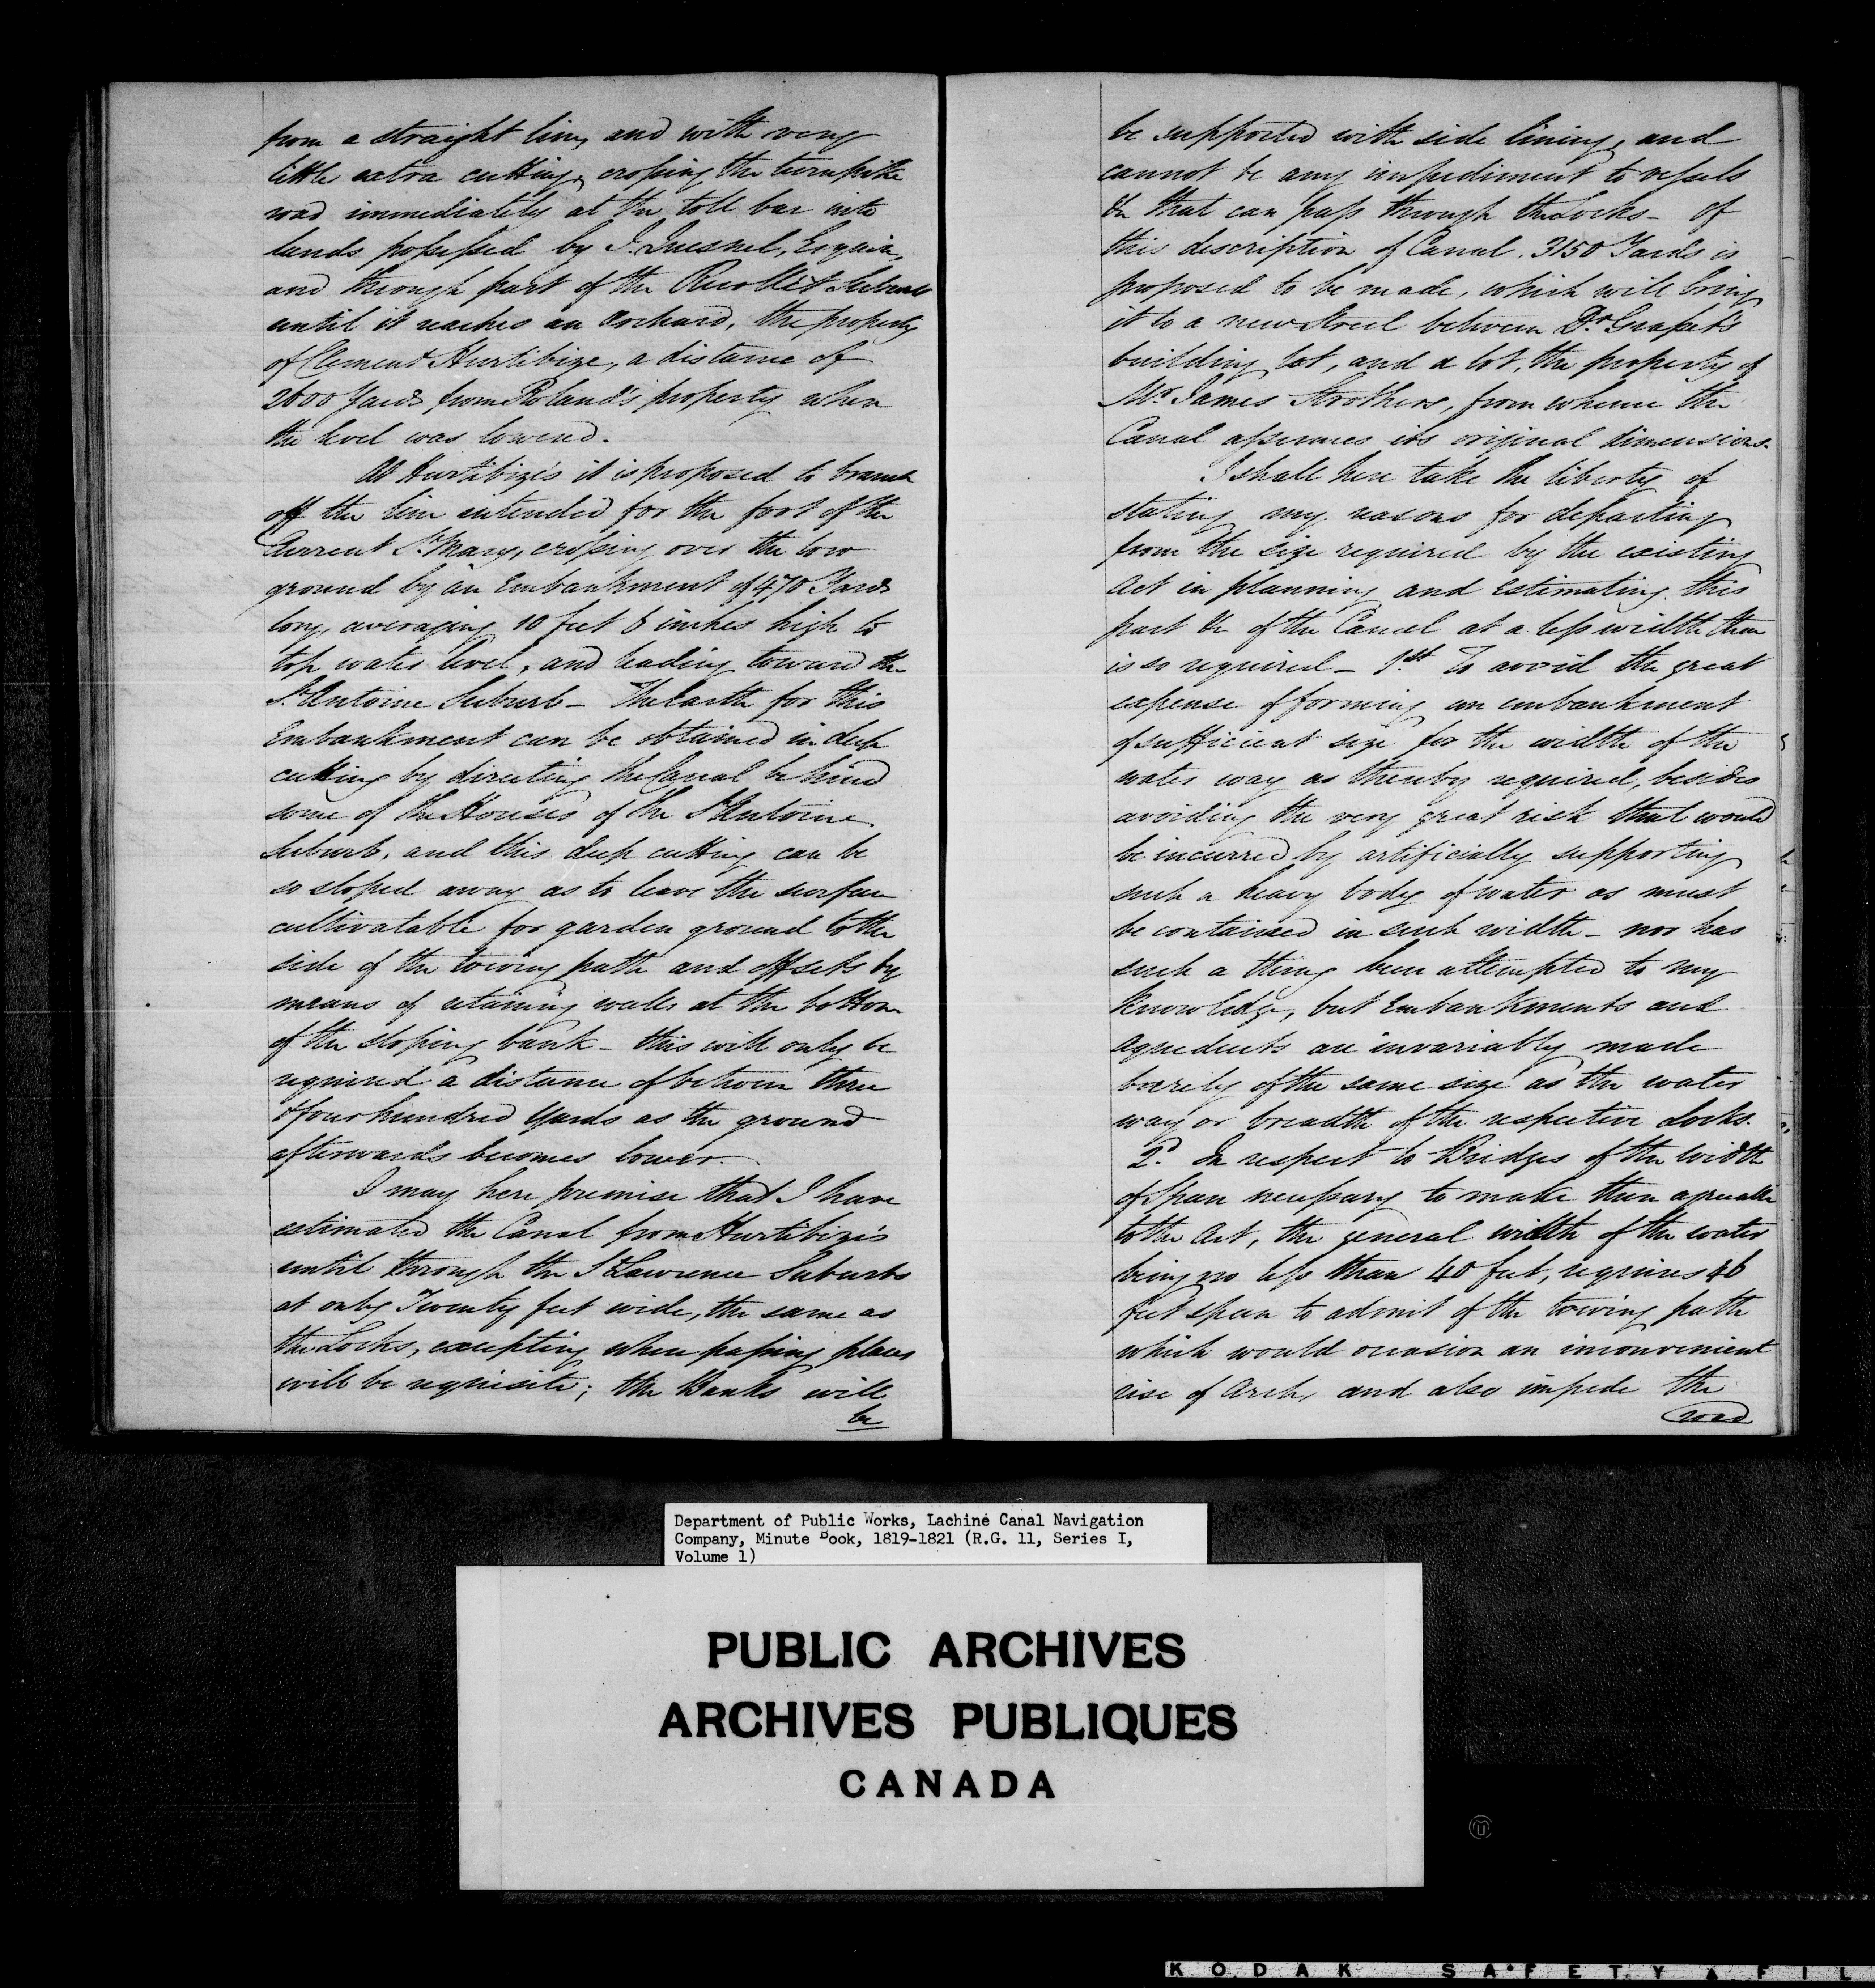 from a straight line, and with very
little extra cutting, crossing the turnpike
road immediately at the toll bar into
lands possessed by J. Quesnel, Esquire,
and through part of the Recollet Suburb
until it reaches an Orchard, the property
of Clement Hurtibize, a distance of
2600 Yards from Roland's property when
the level was lowered.
At Hurtibize's it is proposed to branch
off the line intended for the foot of the
Current St. Mary, crossing over the low
ground by an Embankment of 470 Yards
long, averaging 10 feet 6 inches high to
top water level, and leading toward the
St. Antoine Suburb - The Earth for this
Embankment can be obtained in deep
cutting by directing the Canal behind
some of the Houses of the St. Antoine
Suburb, and this deep cutting can be
so sloped away as to leave the surface
cultivatable for garden ground to the
side of the towing path and offsets by
means of retaining walls at the bottom
of the sloping bank - this will only be
required a distance of between three
& four hundred Yards as the ground
afterwards becomes lower.
I may here premise that I have
estimated the Canal from Hurtibize's
until through the St Lawrence Suburbs
at only Twenty feet wide, the same as
the Locks, excepting when passing places
will be requisite; the Banks will
be
be supported with side lining, and
cannot be any impediment to vessels
&c that can pass through the Locks - of
this description of Canal. 3150 Yards is
proposed to be made, which will bring
it to a new Street between Dr.
building lot, and a lot, the property of
Mr. James Strothers, from whence the
Canal assumes its original dimensions.
I shall here take the liberty of
stating my reasons for departing
from the size required by the existing
Act in planning and Estimating this
part &c of the Canal at a less width than
is so required - 1st To avoid the great
expense of forming an embankment
of sufficient size for the width of the
water way as thereby required, besides
avoiding the very great risk that would
be incurred by artificially supporting
such a heavy body of water as must
be contained in such width - nor has
such a thing been attempted to my
Knowledge, but Embankments and
Aqueducts are invariably made
barely of the same size as the water
way or breadth of the respective Locks.
2d. In respect to Bridges of the width
of Span necessary to make them agreeable
to the Act, the general width of the water
being no less than 40 feet, requires 46
feet span to admit of the towing path
which would occasion an inconvenient
rise of Arch, and also impede the
road
Department of Public Works, Lachine Canal Navigation
Company, Minute Book, 1819-1821 (R.G. 11, Series I,
Volume 1)
PUBLIC ARCHIVES
ARCHIVES PUBLIQUES
CANADA
KODAK SAFETY FIL